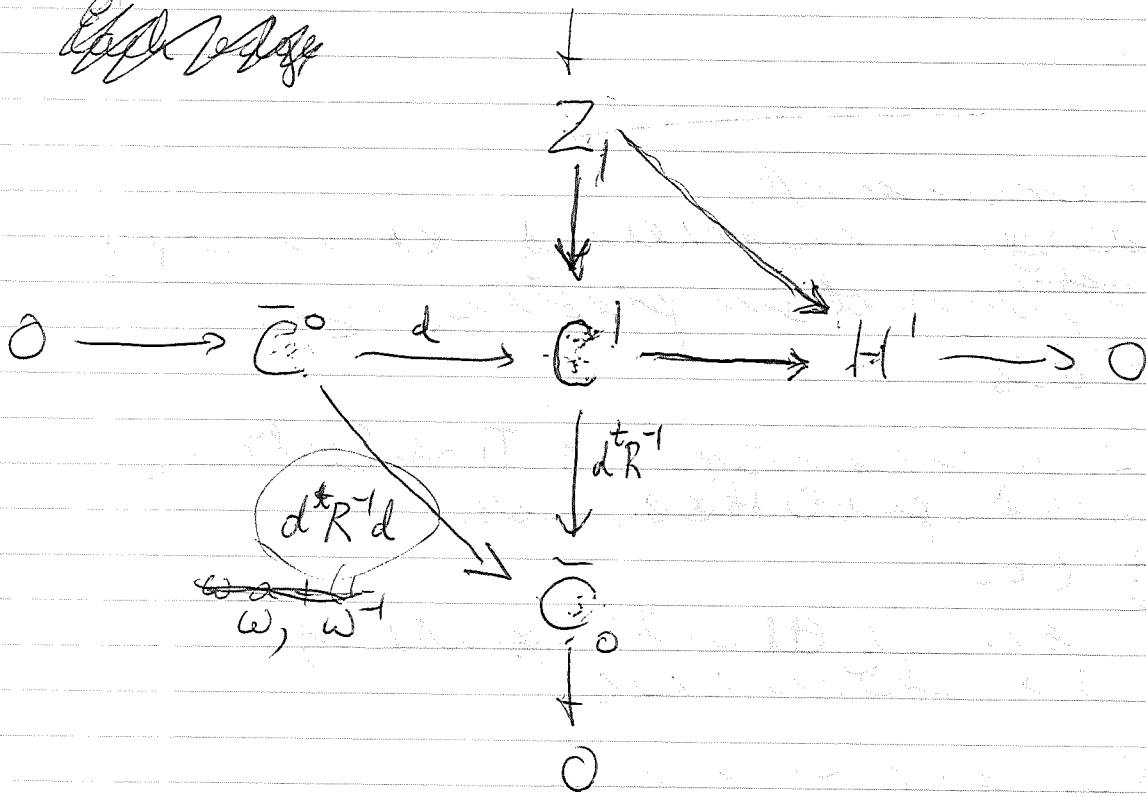 Z₁
0 → C̄⁰ →d C¹ → H¹ → 0
dᵗR⁻¹
dᵗR⁻¹d
ω, ω⁻¹
C̄₀
0